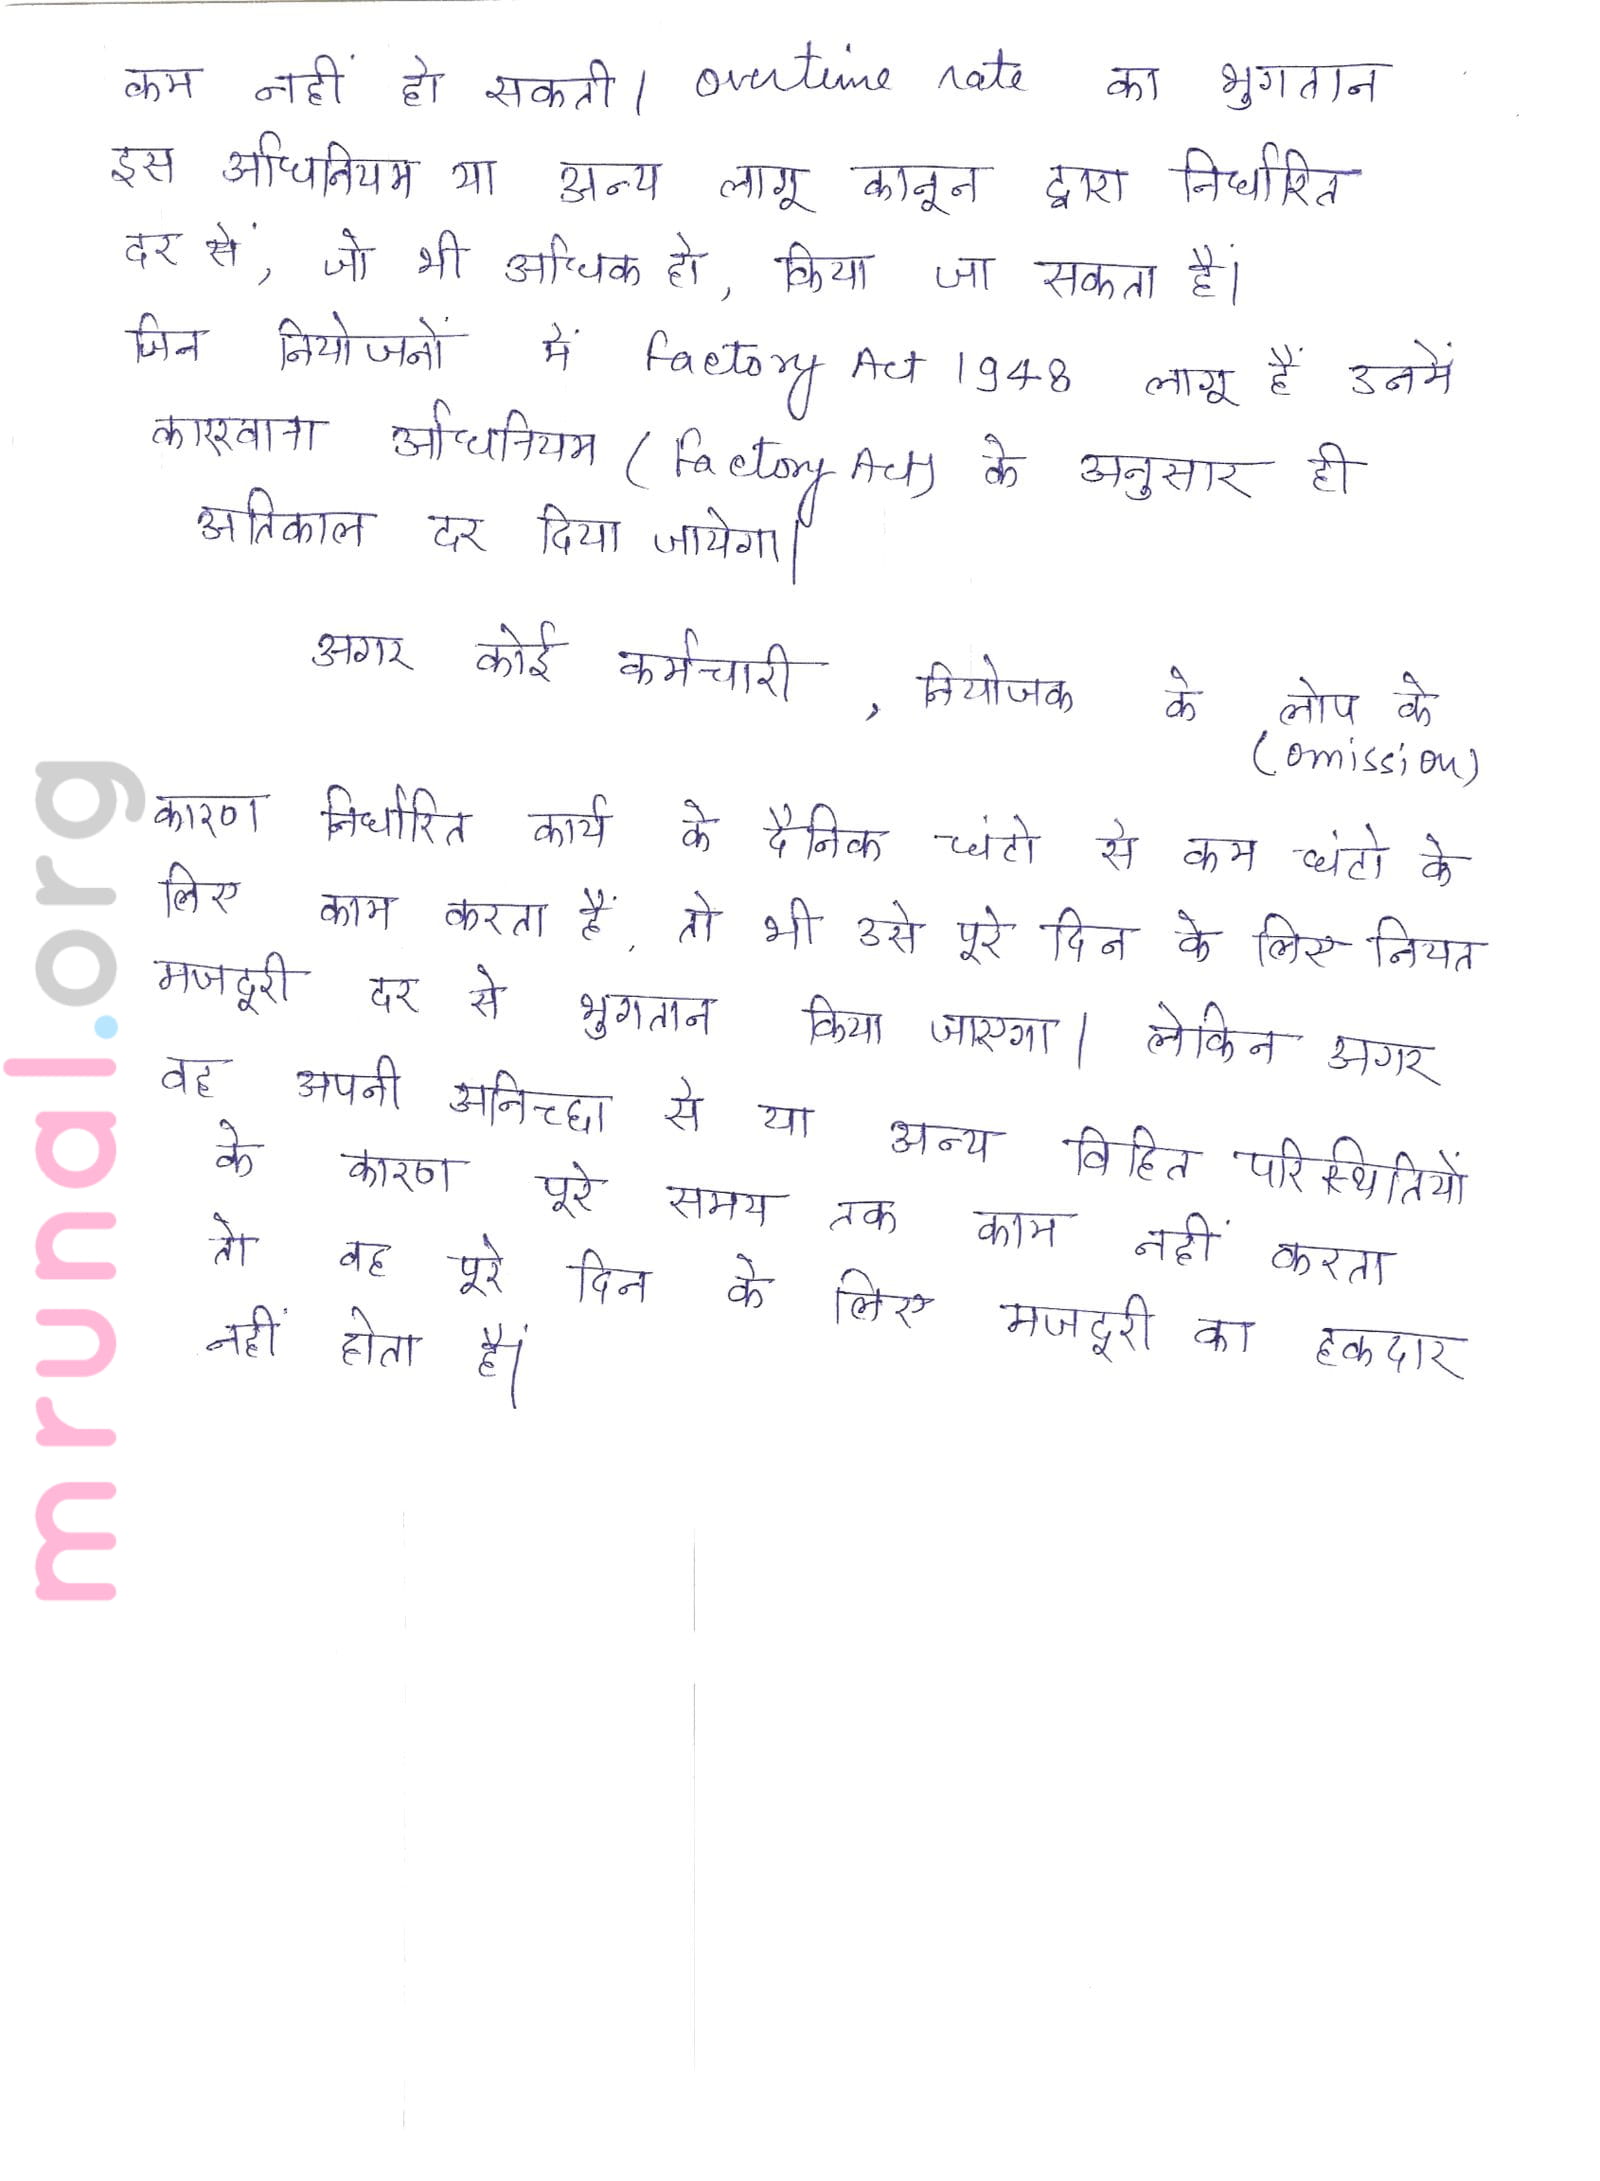 कम नहीं हो सकती। overtime rate का भुगतान
इस अधिनियम या अन्य लागू कानून द्वारा निर्धारित
दर से, जो भी अधिक हो, किया जा सकता है।
जिन नियोजनों में Factory Act 1948 लागू हैं उनमें
कारखाना अधिनियम (Factory Act) के अनुसार ही
अतिकाल दर दिया जायेगा।
अगर कोई कर्मचारी, नियोजक के लोप के
(omission)
कारण निर्धारित कार्य के दैनिक घंटो से कम घंटो के
लिए काम करता हैं, तो भी उसे पूरे दिन के लिए नियत
मजदूरी दर से भुगतान किया जाएगा। लेकिन अगर
वह अपनी अनिच्छा से या अन्य विहित परिस्थितियों
के कारण पूरे समय तक काम नहीं करता
तो वह पूरे दिन के लिए मजदूरी का हकदार
नहीं होता हैं।
mrunal.org